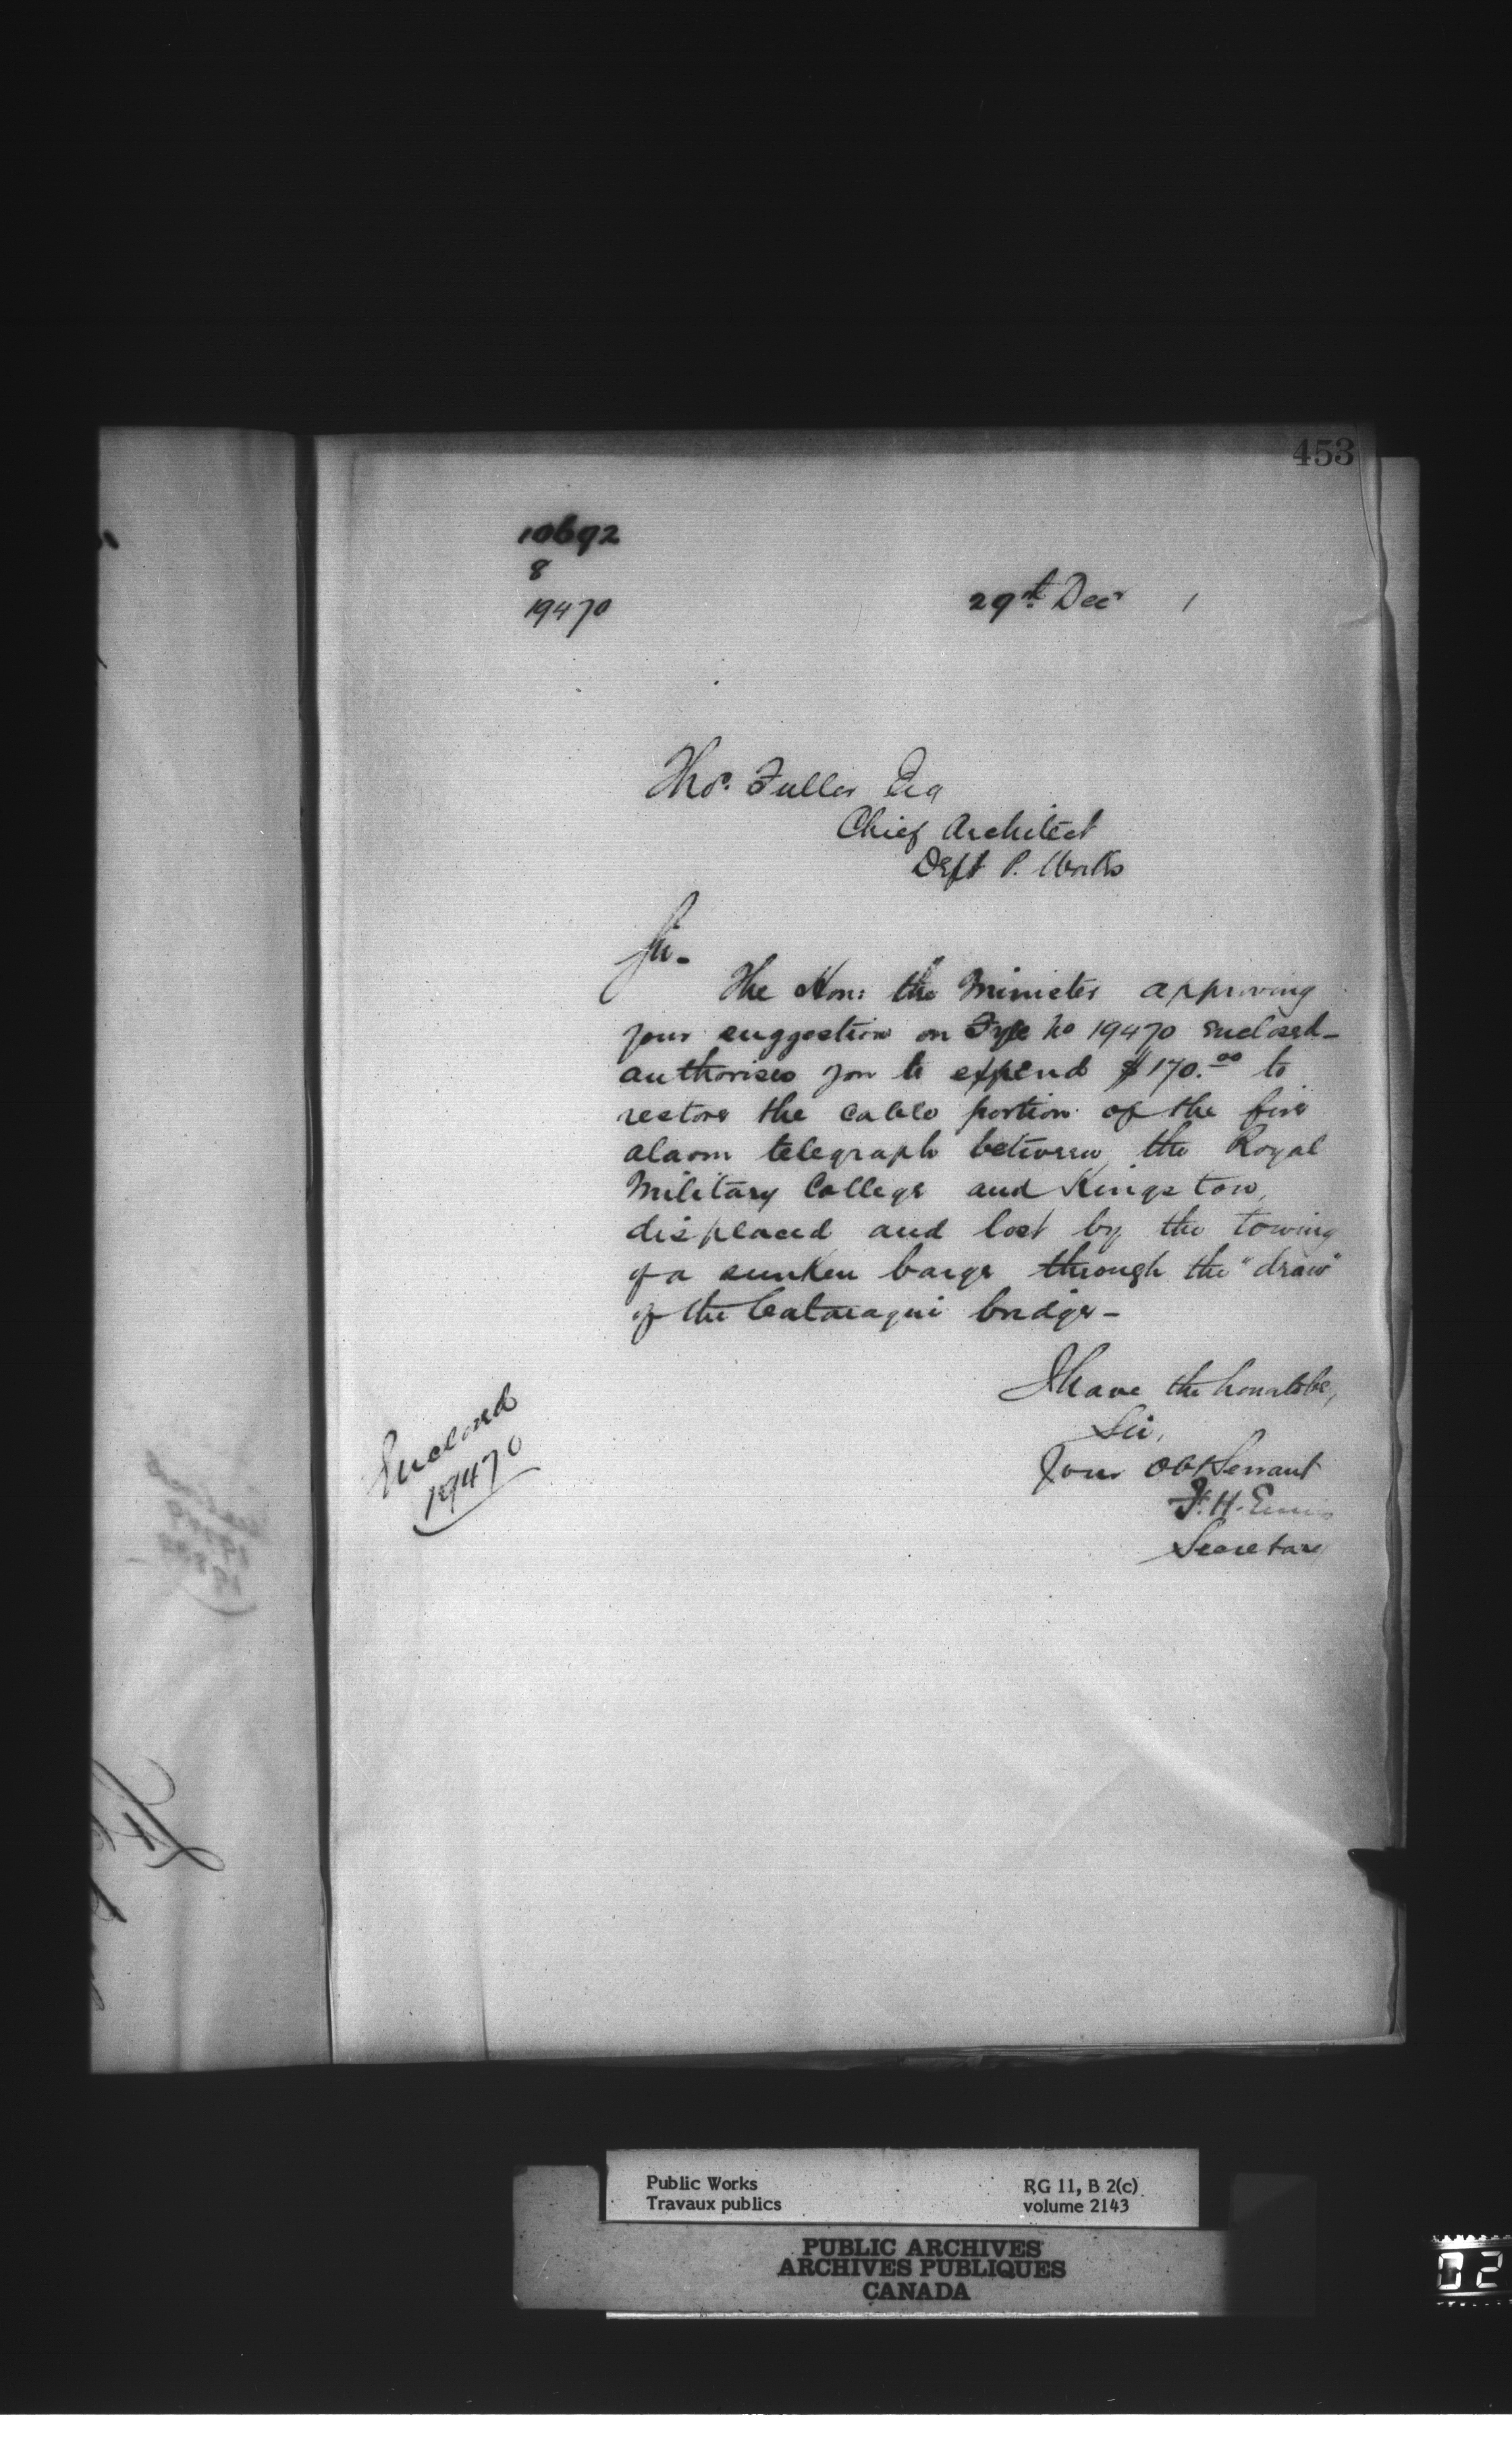 453
10692
8
19470
29th Decr 1
Thos. Fuller Esq
Chief Architect
Dept P. Works
Sir-
The Hon: the Minister approving
your suggestion on Fyle No 19470 enclosed-
authorises you to expend $170.00 to
restore the cable portion of the fire
alarm telegraph between the Royal
Military College and Kingston,
displaced and lost by the towing
of a sunken barge through the "draw"
of the Cataraqui bridge-
I have the honor to be,
Sir,
Your Obt Servant
F. H. Ennis
Secretary
Enclosed
19470
Public Works
Travaux publics
RG 11, B 2(c)
volume 2143
PUBLIC ARCHIVES
ARCHIVES PUBLIQUES
CANADA
02